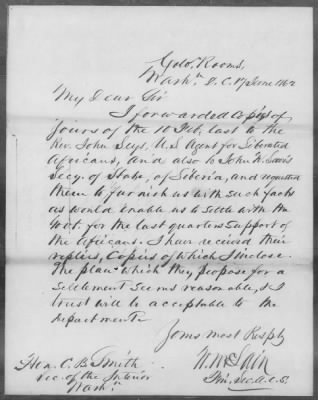 Colo. Rooms,
Washn D. C. 17 June 1862
My Dear Sir
I forwarded copies of
yours of the 10 Feb. last to the
Rev. John Seys, U.S. Agent for Liberated
Africans, and also to John N. Lewis
Secy. of State, of Liberia, and requested
them to furnish us with such facts
as would enable us to settle with the
Govt. for the last quarters support of
the Africans. I have received their
replies, Copies of which I inclose.
The plan which they propose for a
settlement seems reasonable, & I
trust will be acceptable to the
Department
Yours most Resply
W. McLain
Fin. Sec. A.C.S.
Hon. C. B. Smith
Sec. of the Interior
Washn